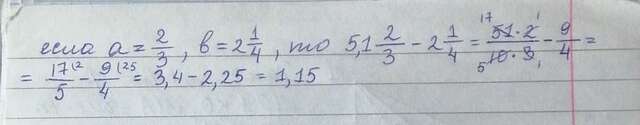 если a = 2/3, в = 2 1/4, то 5,1 · 2/3 − 2 1/4 = 51·2/10·3 − 9/4 =
= 17/5 − 9/4 = 3,4 − 2,25 = 1,15